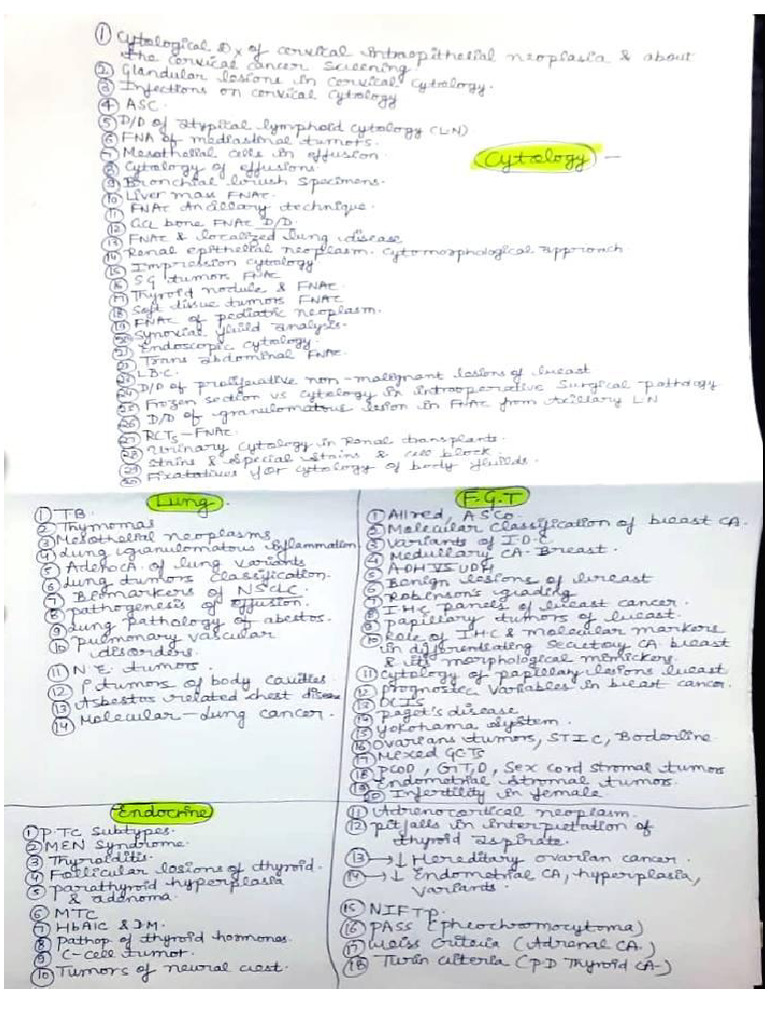 ① Cytological Dx of cervical intraepithelial neoplasia & about
the cervical cancer screening.
② Glandular lesions in cervical cytology.
③ Infections on cervical cytology
④ ASC.
⑤ D/D of atypital lymphoid cytology (LN)
⑥ FNA of mediastinal tumors.
⑦ Mesothelial cells in effusion.
⑧ Cytology of effusions
Cytology –
⑨ Bronchial brush specimens.
⑩ Liver mass FNAC.
⑪ FNAC Ancillary technique.
⑫ GCL bone FNAC D/D.
⑬ FNAC & localized lung disease
⑭ Renal epithelial neoplasm. cytomorphological approach
⑮ Impression cytology
⑯ SG tumors FNAC
⑰ Thyroid nodule & FNAC.
⑱ Soft tissue tumors FNAC
⑲ FNAC of pediatric neoplasm.
⑳ Synovial fluid analysis.
㉑ Endoscopic cytology.
㉒ Trans abdominal FNAC.
㉓ LBC.
㉔ D/D of proliferative non-malignant lesions of breast
㉕ Frozen section vs cytology in intraoperative surgical-pathology
㉖ D/D of granulomatous lesion in FNAC from Axillary LN
㉗ RCTs – FNAC.
㉘ Urinary cytology in Renal transplants.
㉙ Stains & special stains & cell block.
㉚ Fixatatives for cytology of body fluids.
Lung.
① TB.
② Thymomas
③ Mesothelial neoplasms
④ lung granulomatous inflammation
⑤ AdenoCA. of lung variants
⑥ Lung tumors classification.
⑦ Biomarkers of NSCLC.
⑧ pathogenesis of effusion.
⑨ Lung pathology of abestos.
⑩ pulmonary vascular
disorders.
⑪ N.E tumors.
⑫ tumors of body cavities
⑬ Asbestos related chest disease
⑭ Molecular – lung cancer.
F.G.T
① Allred, ASCO.
② Molecular classification of breast CA.
③ Variants of I.D.C
④ Medullary CA. Breast.
⑤ ADH VS UDH
⑥ Benign lesions of breast
Robinson's grading
IHC panels of breast cancer.
⑨ papillary tumors of breast.
⑩ Role of IHC & molecular markers
in differentiating Secretory CA breast
& its morphological mimickers.
⑪ cytology of papillary lesions breast
⑫ prognostic variables in breast cancer.
⑬ DCIS
⑭ paget's disease
⑮ yokohama system.
⑯ Ovarians tumors, STIC, Boderline
⑰ Mixed GCTs
⑱ PCOD, GTD, Sex cord stromal tumors
⑲ Endometrial stromal tumors.
⑳ Infertility in female
Endocrine
① PTC Subtypes.
② MEN Syndrome.
③ Thyroiditis.
④ Follicular lesions of thyroid.
⑤ parathyroid hyperplasia
& adenoma.
⑥ MTC
⑦ HbA1C & DM.
⑧ Pathop of thyroid hormones.
⑨ C-cell tumor.
⑩ Tumors of neural crest.
⑪ Adrenocortical neoplasm.
⑫ pitfalls in interpretation of
thyroid aspirate.
⑬ → ↓ Hereditary ovarian cancer.
⑭ → ↓ Endometrial CA, hyperplasia,
variants.
⑮ NIFTP.
⑯ PASS (pheochromocytoma)
⑰ Weiss criteria (Adrenal CA.)
⑱ Turin criteria (PD Thyroid CA-)